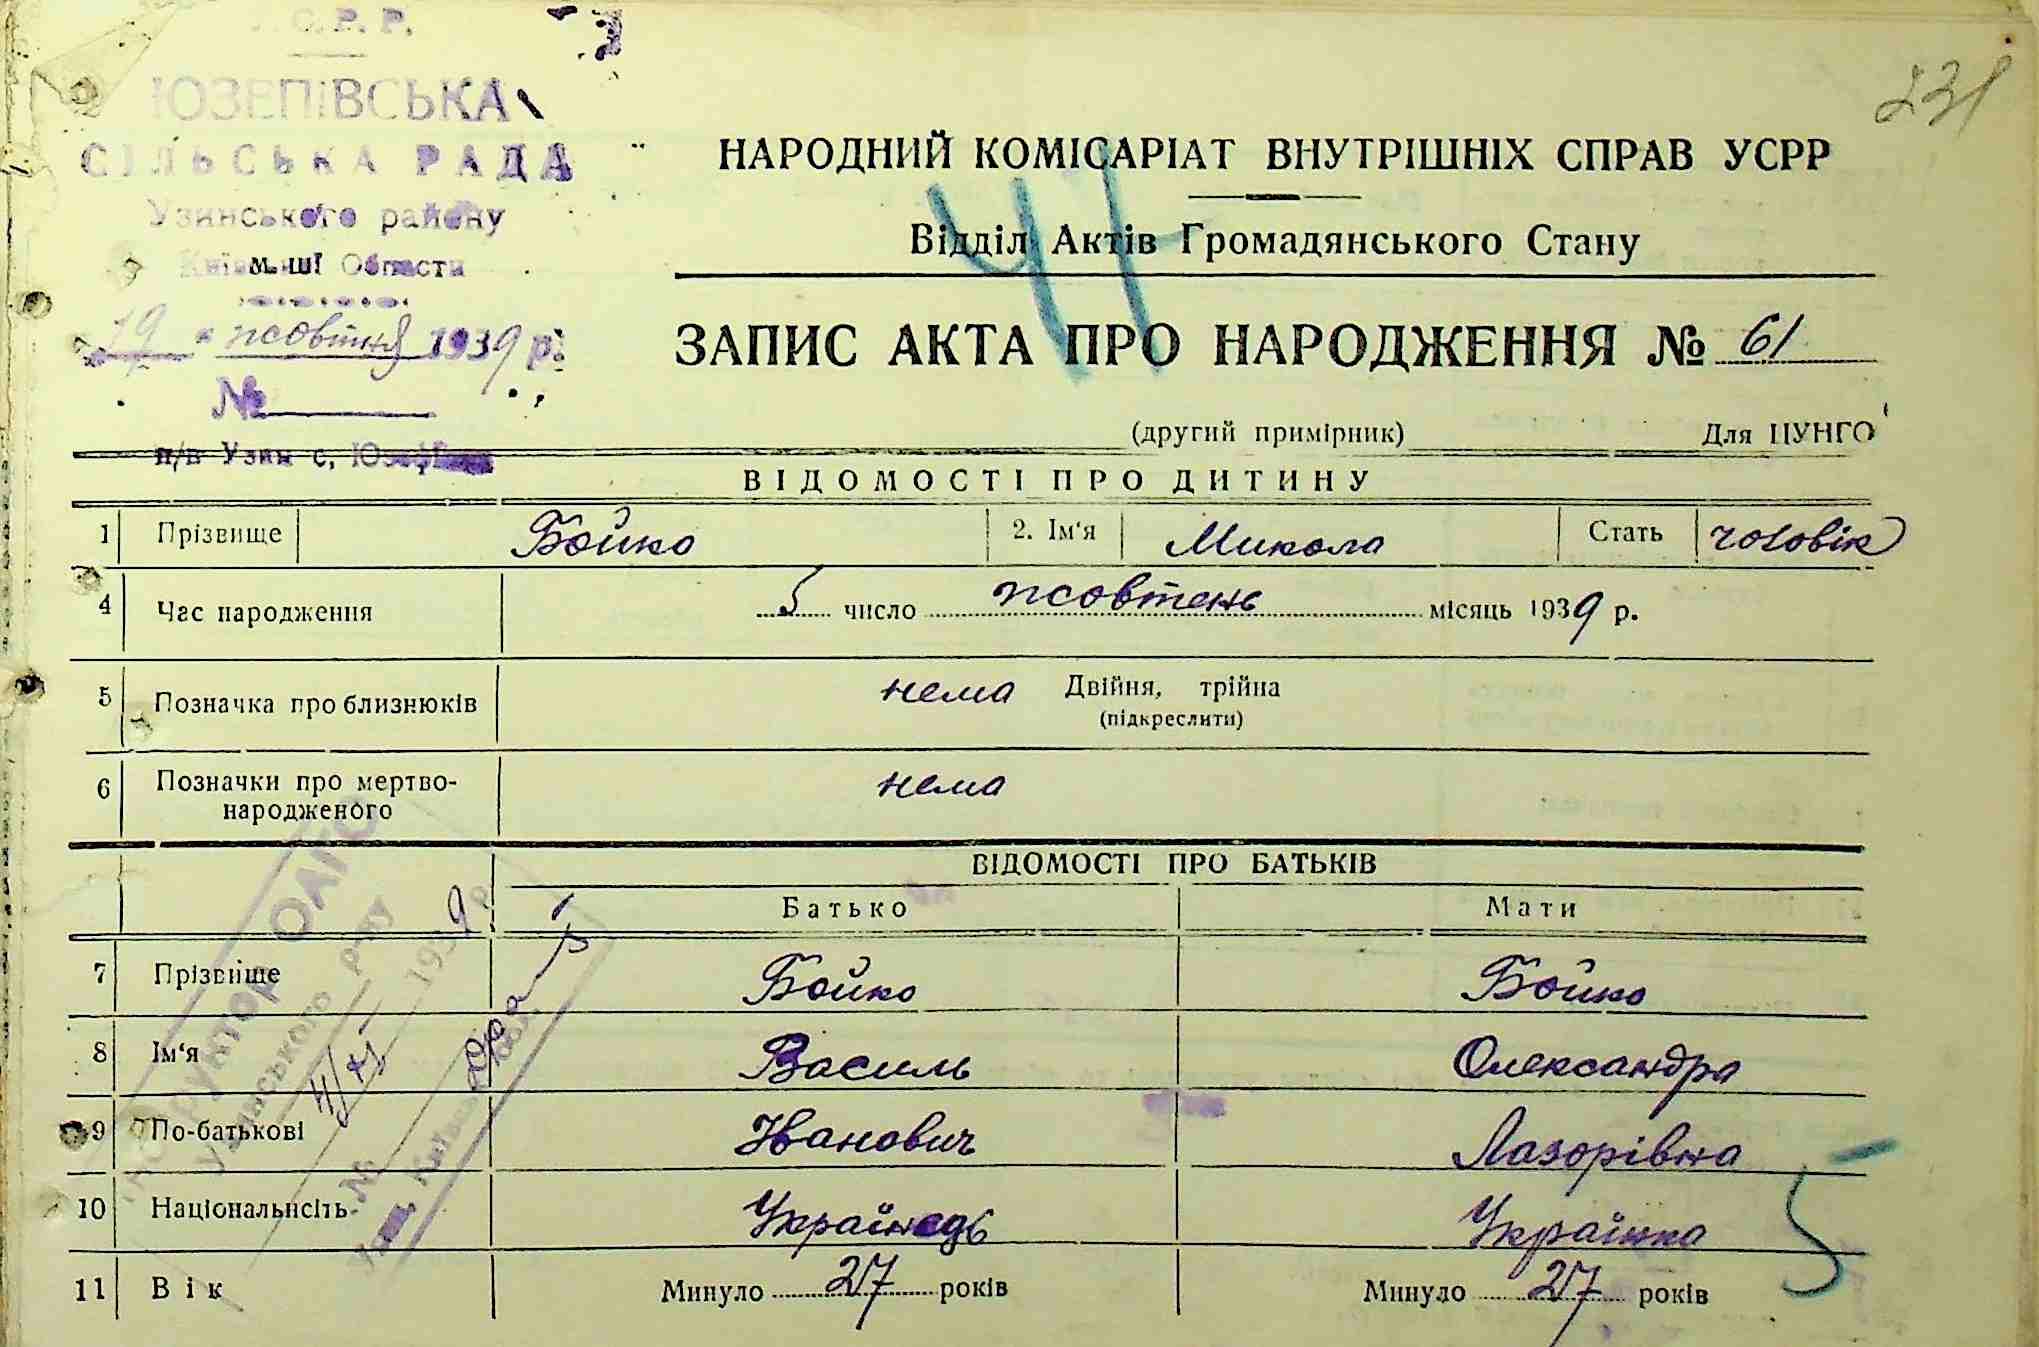 С. Р. Р.
ЮЗЕПІВСЬКА
СІЛЬСЬКА РАДА
Узинського району
Області
19 " жовтня 1939 р.
№
п/в Узин с.
231
НАРОДНИЙ КОМІСАРІАТ ВНУТРІШНІХ СПРАВ УСРР
Відділ Актів Громадянського Стану
ЗАПИС АКТА ПРО НАРОДЖЕННЯ № 61
(другий примірник) Для ЦУНГО
ВІДОМОСТІ ПРО ДИТИНУ
1 Прізвище Бойко 2. Ім'я Микола Стать чоловік
4 Час народження 5 число жовтень місяць 1939 р.
5 Позначка про близнюків нема Двійня, трійна
(підкреслити)
6 Позначки про мертво-
народженого нема
ВІДОМОСТІ ПРО БАТЬКІВ
Батько Мати
7 Прізвище Бойко Бойко
8 Ім'я Василь Олександра
9 По-батькові Іванович Лазорівна
10 Національність Українець Українка
11 Вік Минуло 27 років Минуло 27 років